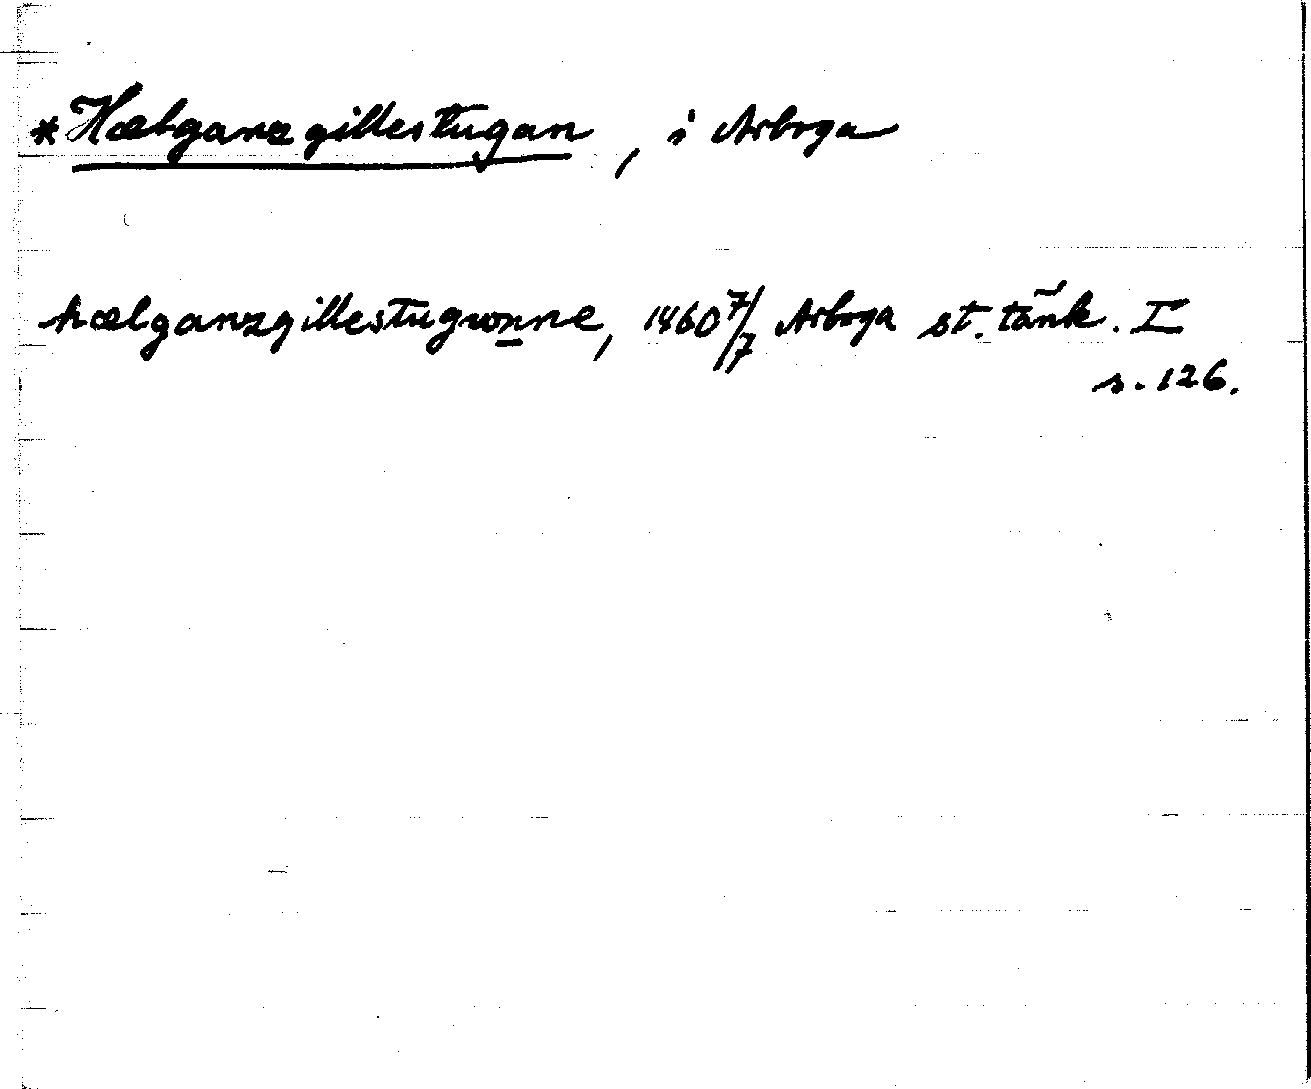 *Hælganz gillestugan, i Arboga
hælganzgillestugwonne, 1460 7/7 Arboga st. tänk. I
s. 126.